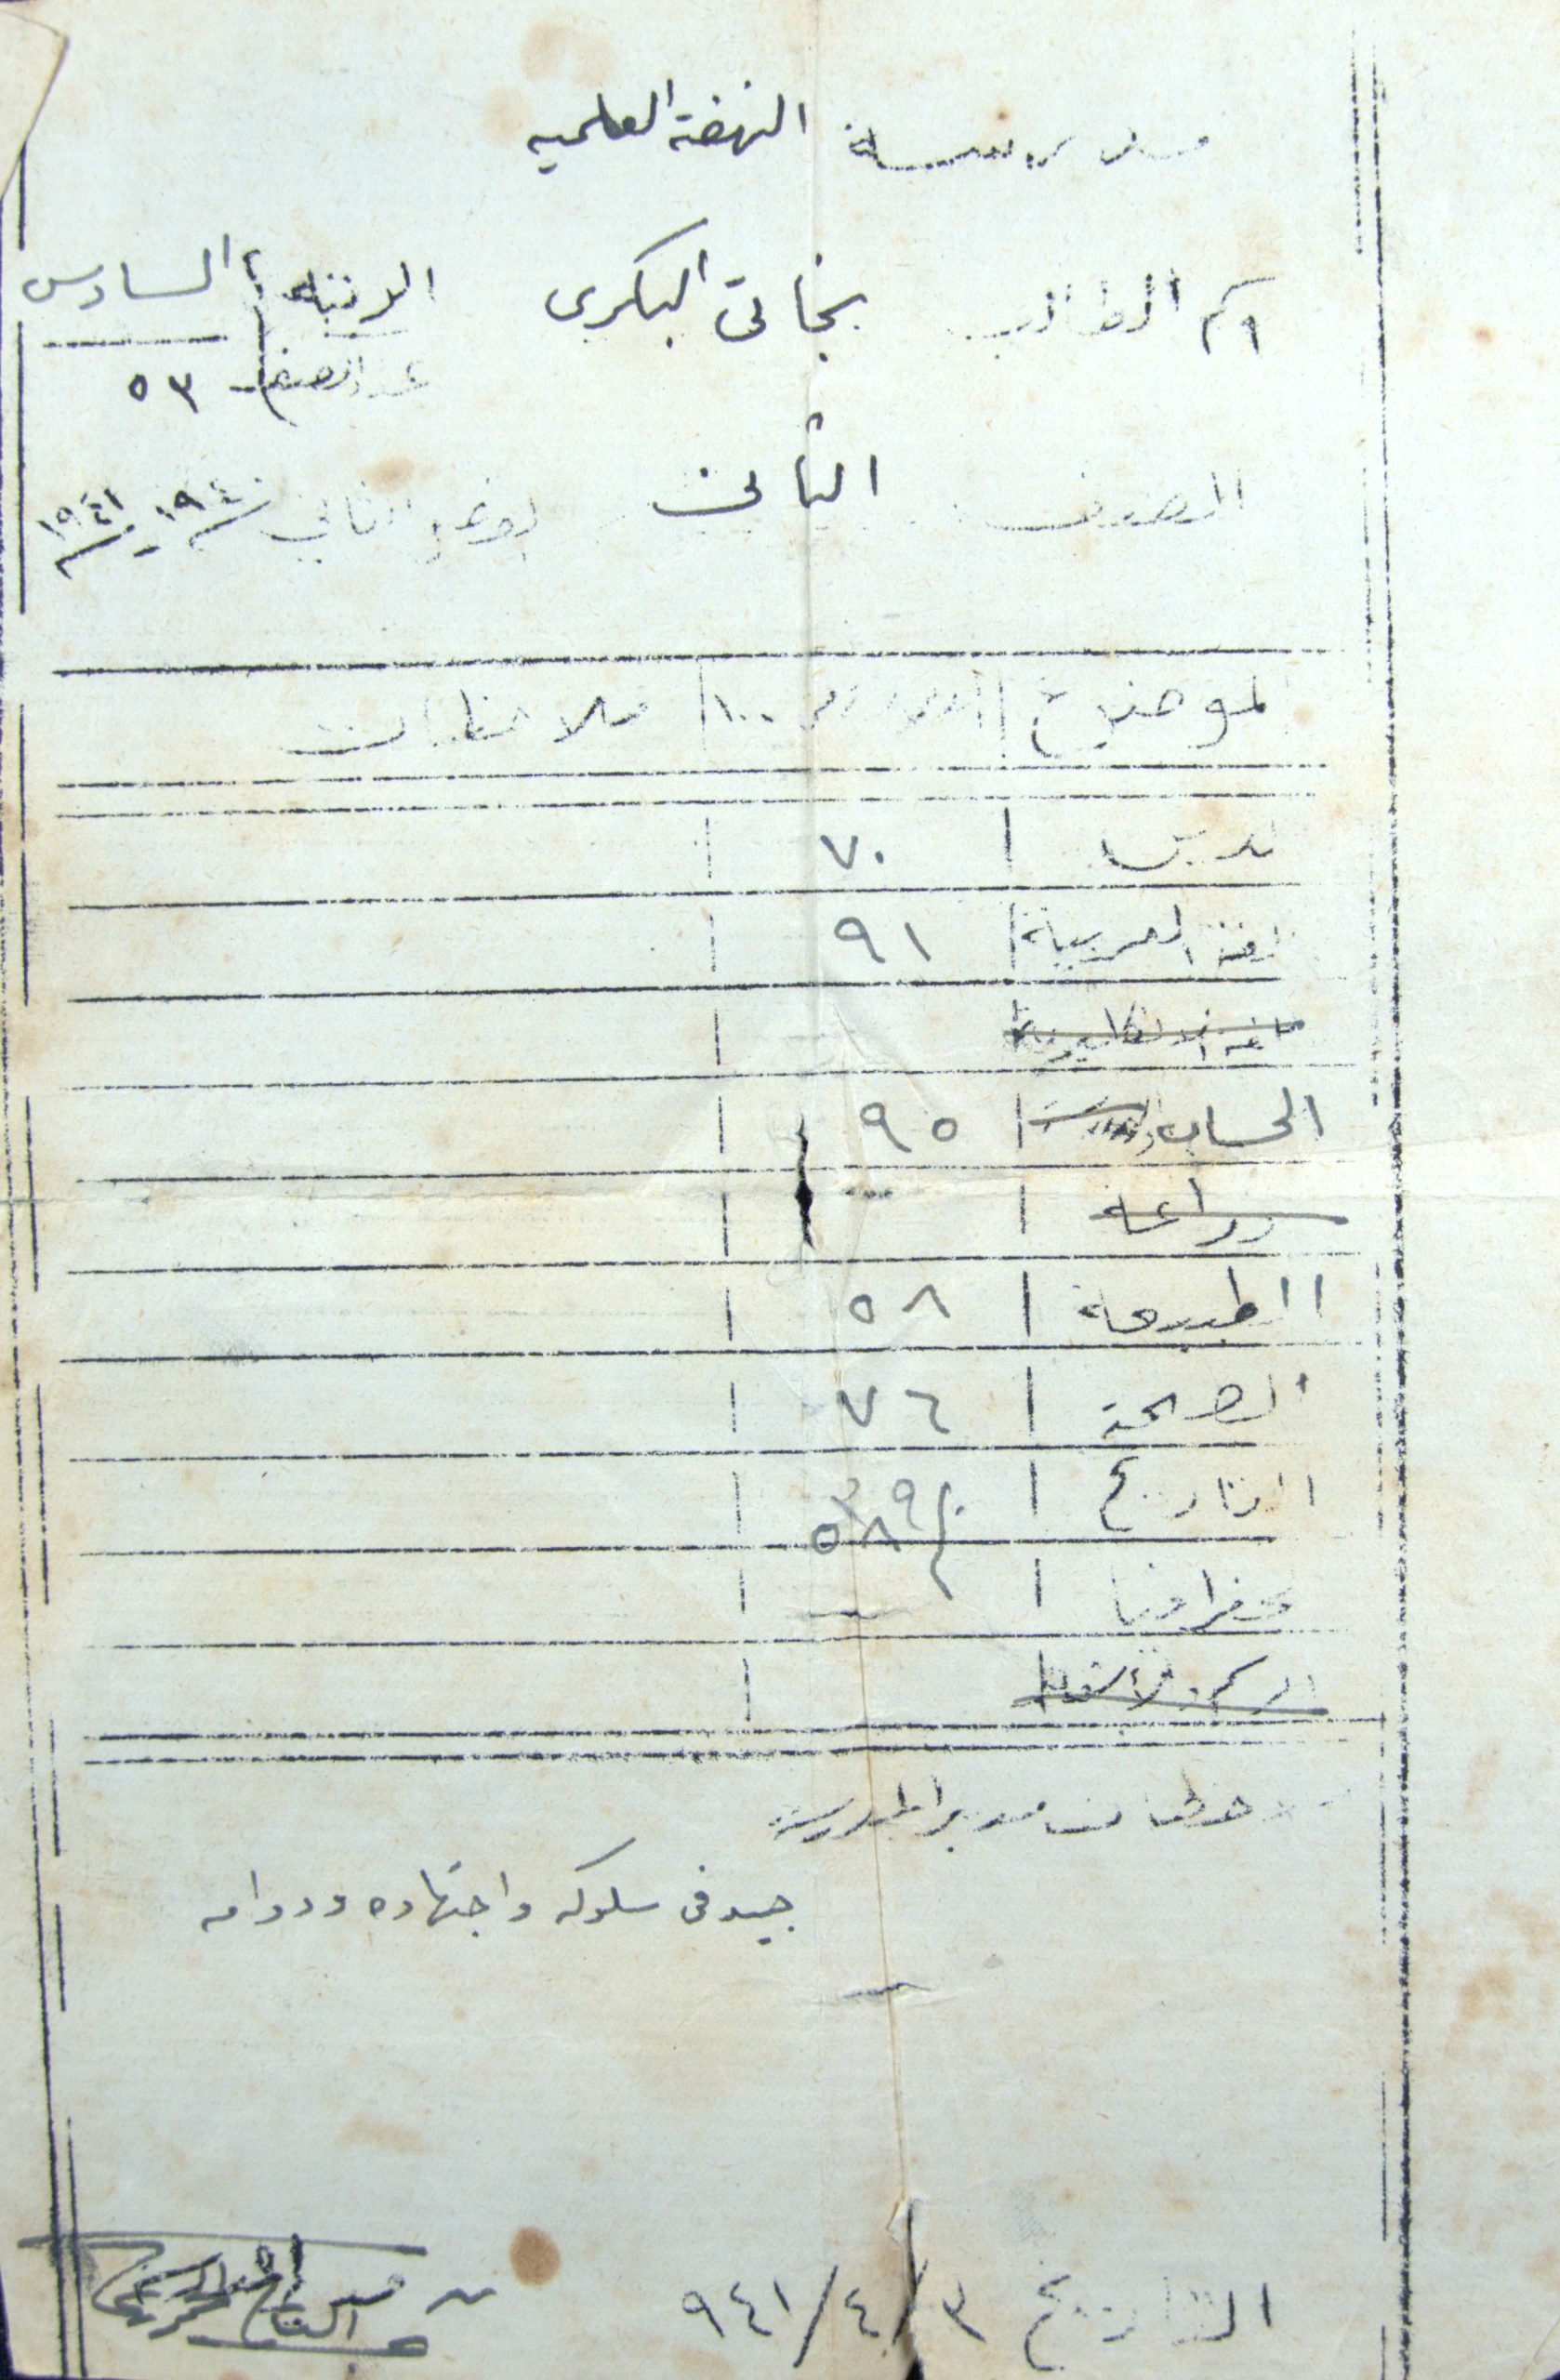 مدرسة النهضة العلميه
اسم الطالب نجاتي البكري الرتبة السادس
عدد الصف ٥٣
الصف الثالث الفصل الثاني ١٩٤٠-١٩٤١
الموضوع ١٠٠ ملاحظات
الدين ٧٠
اللغة العربية ٩١
اللغة الانكليزية
الحساب ٩٥
زراعة
الطبيعة ٥٨
الصحة ٧٦
التاريخ ٣٩
٥٨
جغرافيا
الرسم والأشغال
ملاحظات مدير المدرسة
جيد في سلوكه واجتهاده ودوامه
التاريخ ٣/٤/٩٤١